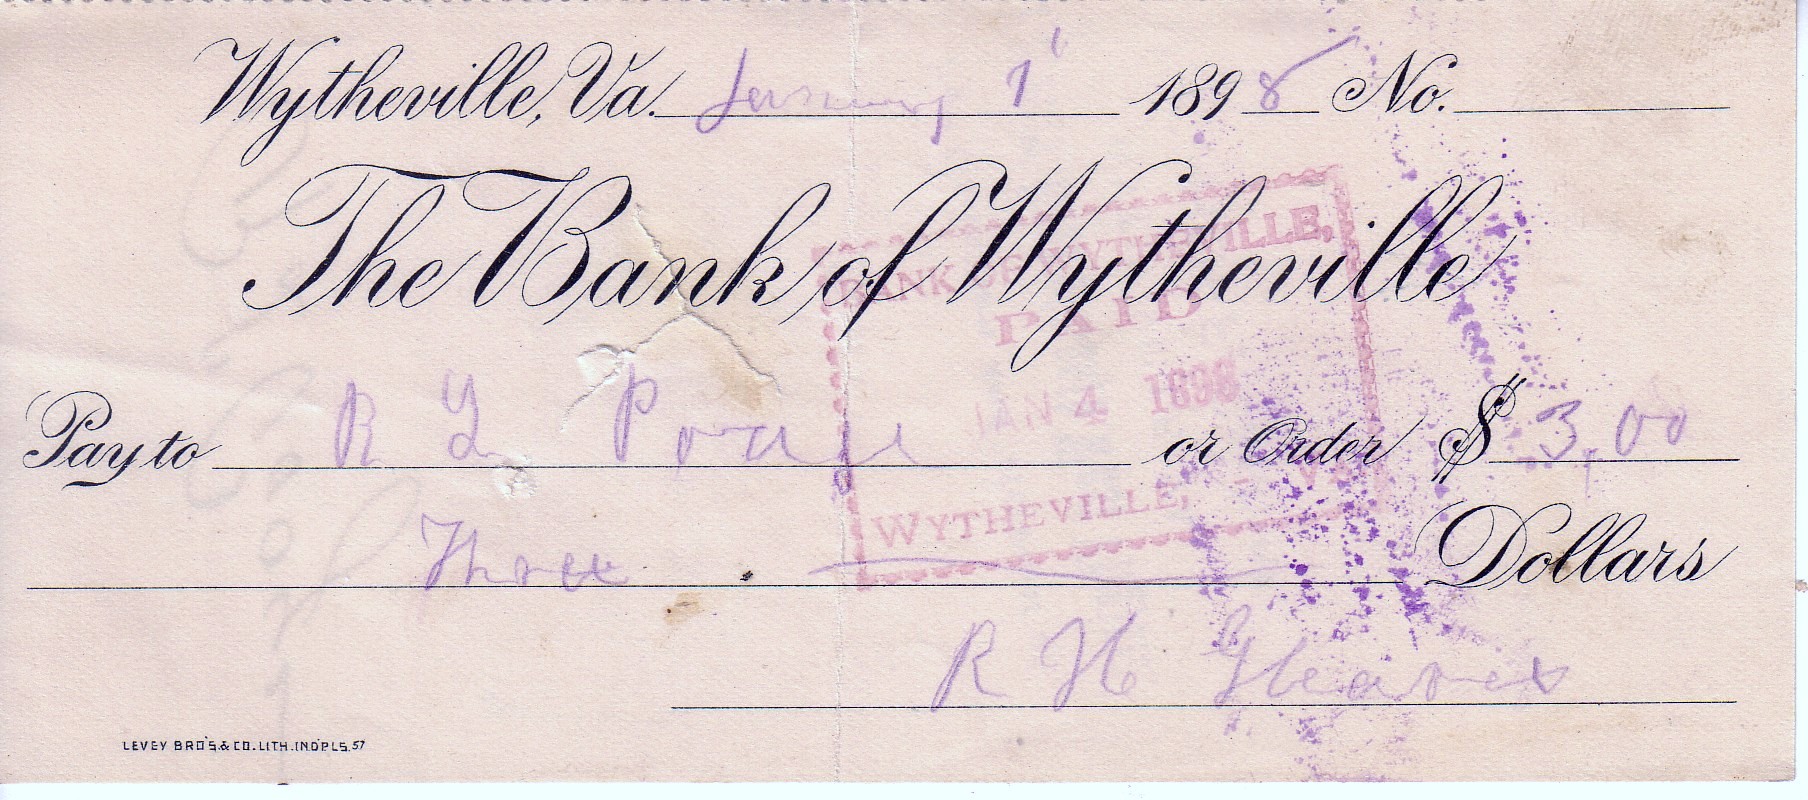 Wytheville, Va. January 1 1898 No.
The Bank of Wytheville
BANK OF WYTHEVILLE,
PAID
JAN 4 1898
WYTHEVILLE, - VA.
Pay to R L or Order $ 3,00
Three Dollars
R H Gleaves
LEVEY BRO'S. & CO. LITH. IND'PLS. 57